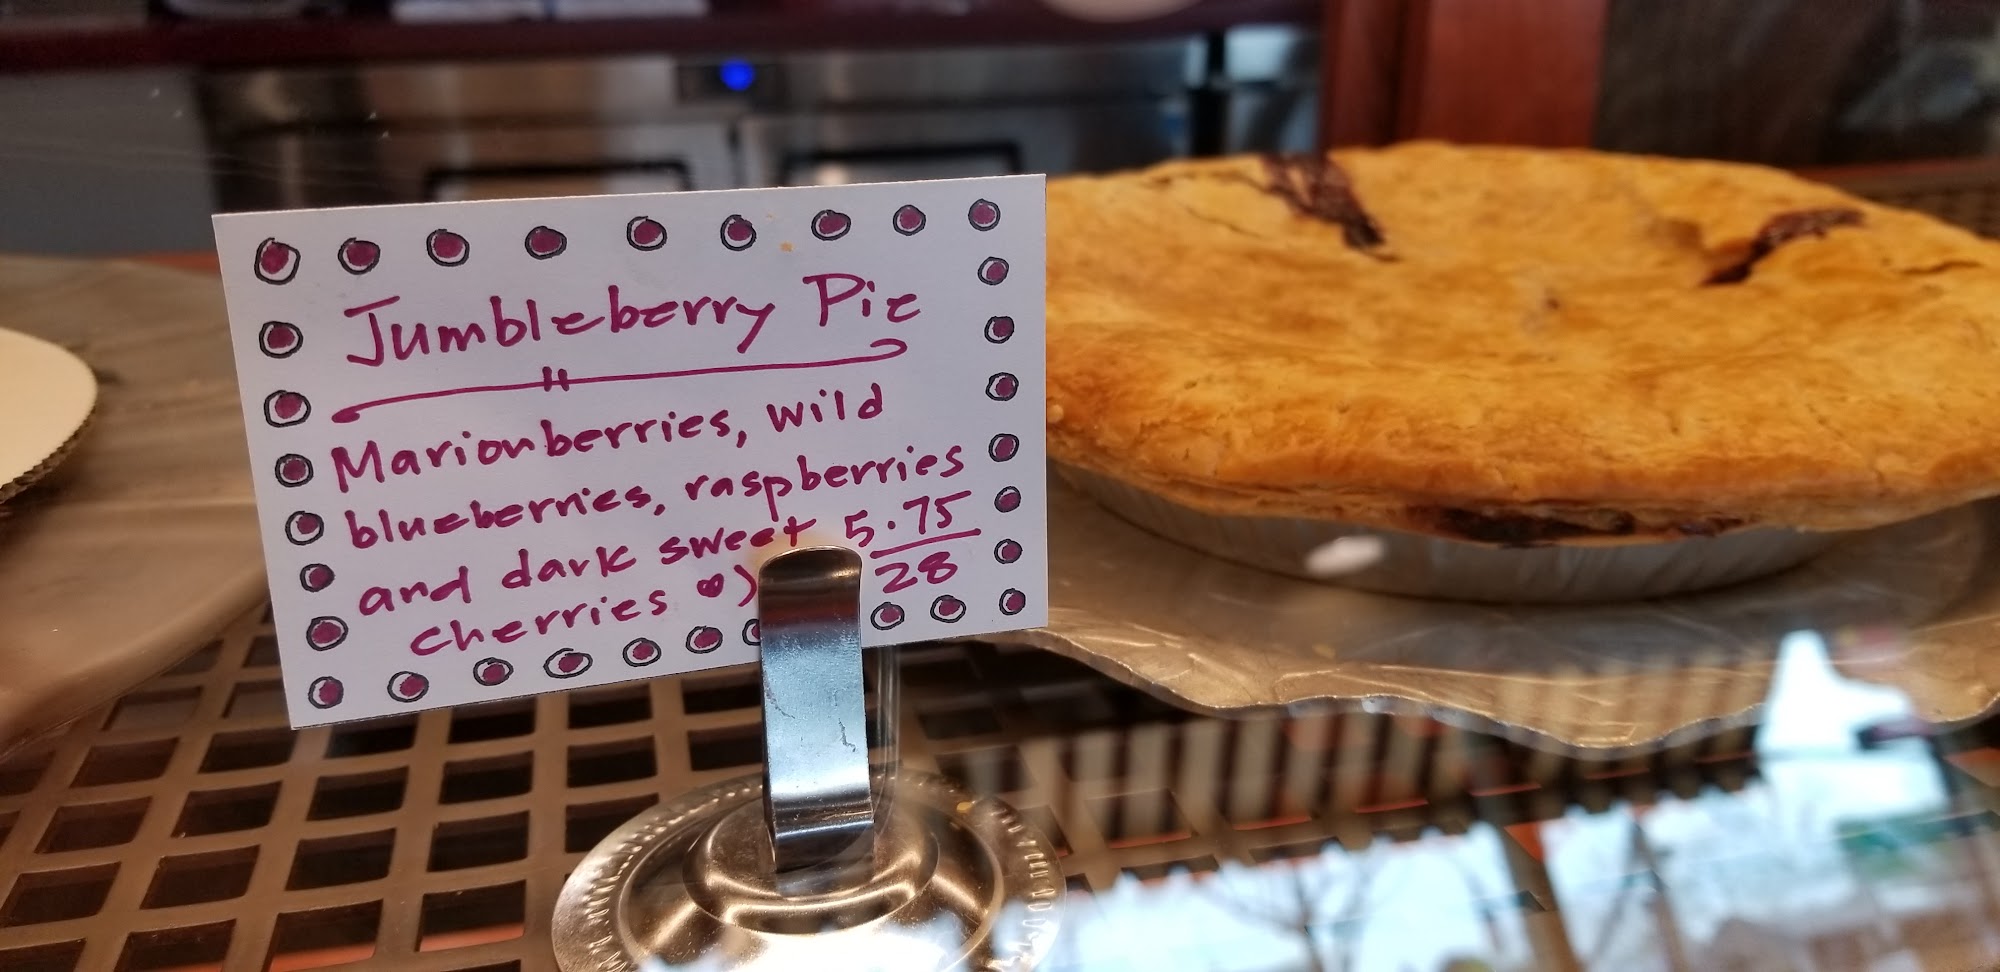 Jumbleberry Pie
Marionberries, wild
blueberries, raspberries
and dark sweet
cherries ♥)
5.75
28